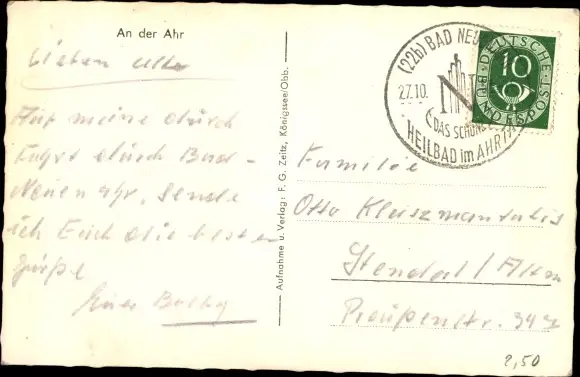 An der Ahr
Lieben alle
Auf meine dürch
fahrt dürch Bad-
Neuen ahr, sende
ich Eich die besten
Grüße
Eier
Aufnahme u. Verlag: F. G. Zeitz, Königssee/Obb.
(22b) BAD NEU
27.10.
DAS SCHÖNE
HEILBAD im AHRT
DEUTSCHE
BUNDESPOST
10
Familie
Otto
Stendal/Altm
Preußenstr. 34
2,50